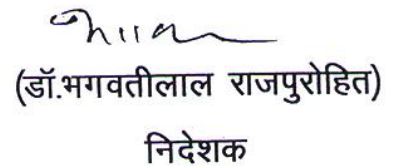 (डॉ.भगवतीलाल राजपुरोहित)
निदेशक